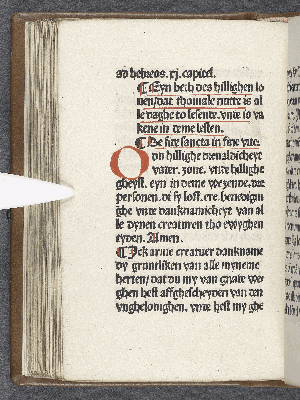 ad hebreos. xj. capitel.
¶ Eyn beth des hillighen lo
uen/dat thomale nutte is al
le daghe to lesende. vnde io va
kene in deme lesten.
¶ De fide sancta in fine vite.
O du hillighe dreualdicheyt
vader. sone. vnde hillighe
gheyst. eyn in deme wesende. dre
personen. di sy loff. ere. benedigu
ghe vnde dancknamicheyt van al
le dynen creaturen tho ewyghen
tyden. Amen.
¶ Jck arme creatuer danckname
dy gruntliken van alle myneme
herten/dat du my van gnade we
ghen hest affghescheyden van den
vnghelouighen. vnde hest my ghe